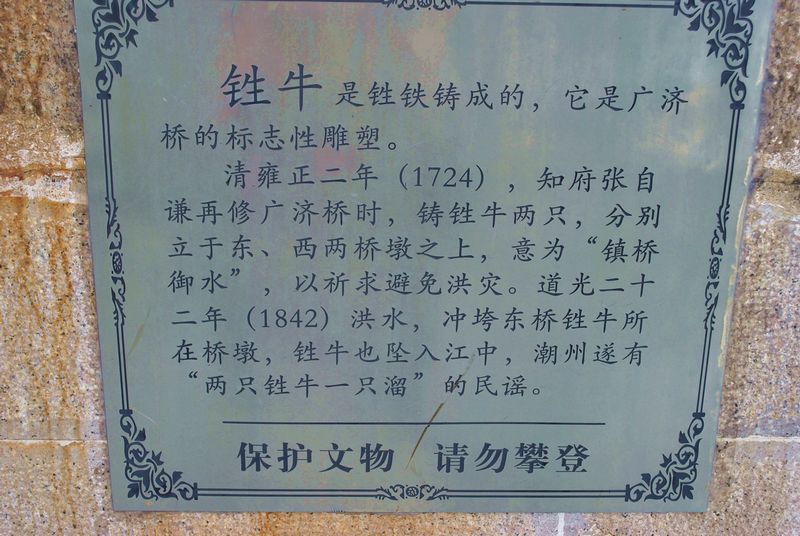 鉎牛是鉎铁铸成的，它是广济
桥的标志性雕塑。
清雍正二年（1724），知府张自
谦再修广济桥时，铸鉎牛两只，分别
立于东、西两桥墩之上，意为“镇桥
御水”，以祈求避免洪灾。道光二十
二年（1842）洪水，冲垮东桥鉎牛所
在桥墩，鉎牛也坠入江中，潮州遂有
“两只鉎牛一只溜”的民谣。
保护文物 请勿攀登